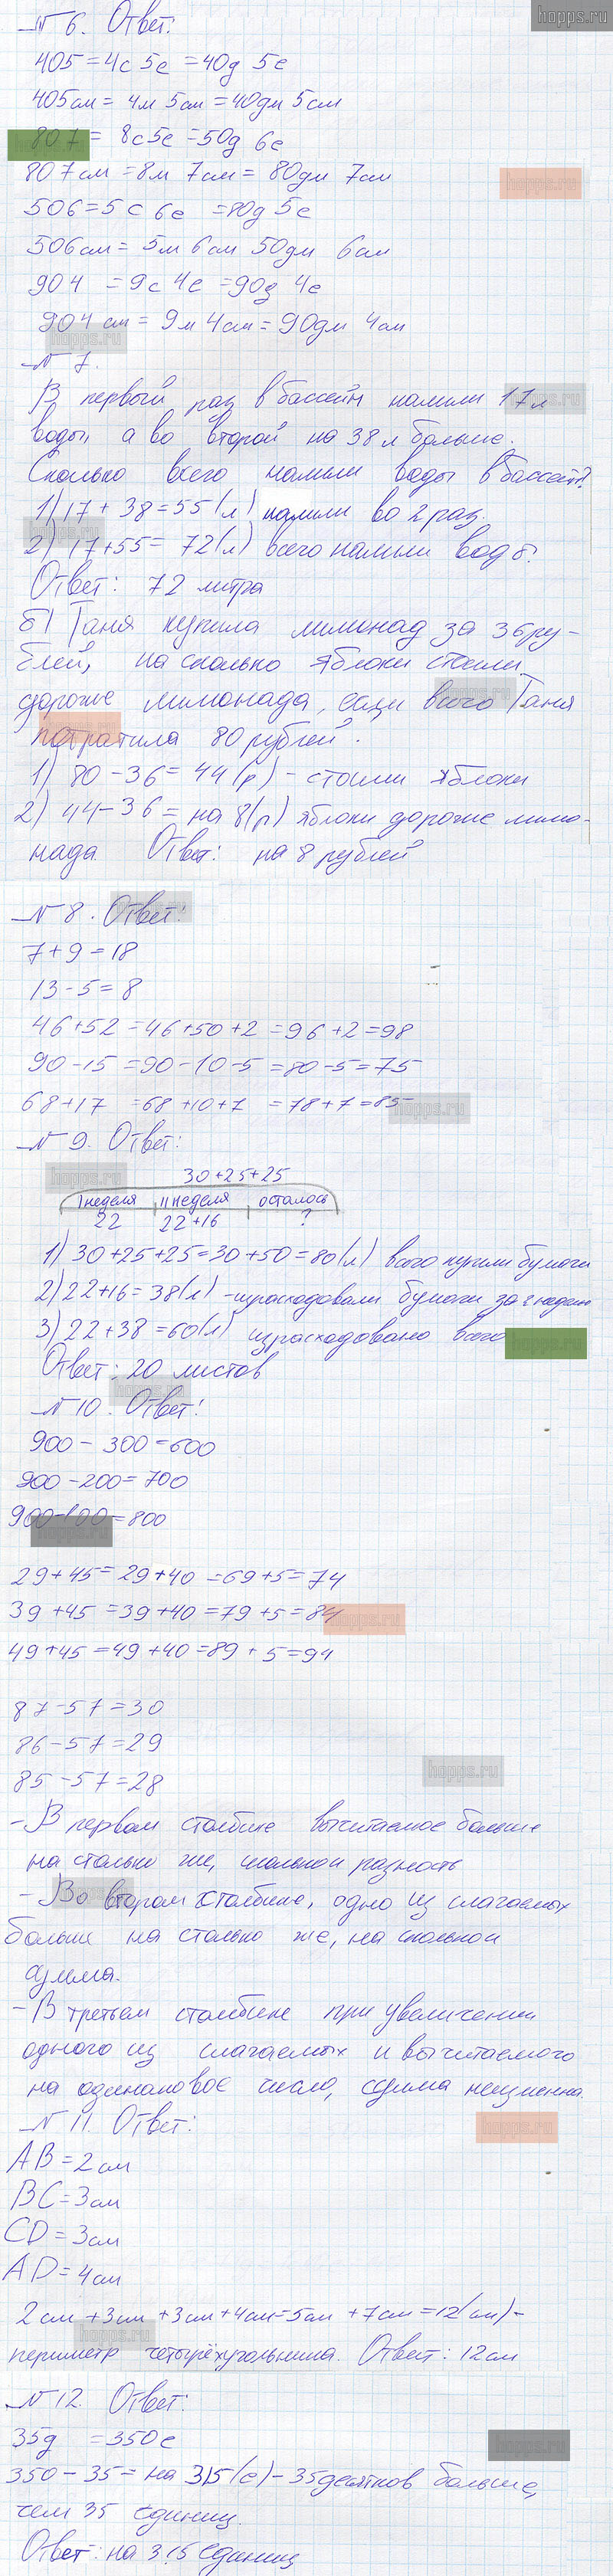 hopps.ru
№ 6. Ответ:
405 = 4с 5е = 40д 5е
405 см = 4м 5см = 40дм 5см
807 = 8с 5е = 50д 6е
807 см = 8м 7см = 80дм 7см
506 = 5с 6е = 80д 5е
506 см = 5м 6см 50дм 6см
904 = 9с 4е = 90д 4е
904 см = 9м 4см = 90дм 4см
№ 7.
В первый раз в бассейн налили 17 л
воды, а во второй на 38 л больше.
Сколько всего налили воды в бассейн?
1) 17 + 38 = 55 (л) налили во 2 раз.
2) 17 + 55 = 72 (л) всего налили воды.
Ответ: 72 литра
б) Таня купила лимонад за 36 ру-
блей, на сколько яблоки стоили
дороже лимонада, если всего Таня
потратила 80 рублей.
1) 80 - 36 = 44 (р) - стоили яблоки
2) 44 - 36 = на 8 (р) яблоки дороже лимо-
нада. Ответ: на 8 рублей
№ 8. Ответ:
7 + 9 = 18
13 - 5 = 8
46 + 52 = 46 + 50 + 2 = 96 + 2 = 98
90 - 15 = 90 - 10 - 5 = 80 - 5 = 75
68 + 17 = 68 + 10 + 7 = 78 + 7 = 85
№ 9. Ответ:
30 + 25 + 25
I неделя II неделя осталось
22 22 + 16 ?
1) 30 + 25 + 25 = 30 + 50 = 80 (л) всего купили бумаги
2) 22 + 16 = 38 (л) - израсходовали бумаги за 2 неделю
3) 22 + 38 = 60 (л) израсходовано всего
Ответ: 20 листов
№ 10. Ответ:
900 - 300 = 600
900 - 200 = 700
900 - 100 = 800
29 + 45 = 29 + 40 = 69 + 5 = 74
39 + 45 = 39 + 40 = 79 + 5 = 84
49 + 45 = 49 + 40 = 89 + 5 = 94
87 - 57 = 30
86 - 57 = 29
85 - 57 = 28
- В первом столбике вычитаемое больше
на столько же, сколькои разность
- Во втором столбике, одно из слагаемых
больше на столько же, на сколькои
сумма.
- В третьем столбике при увеличении
одного из слагаемых и вычитаемого
на одинаковое число, сумма неизменна.
№ 11. Ответ:
AB = 2 см
BC = 3 см
CD = 3 см
AD = 4 см
2 см + 3 см + 3 см + 4 см = 5 см + 7 см = 12 (см) -
периметр четырёхугольника. Ответ: 12 см
№ 12. Ответ:
35д = 350е
350 - 35 = на 315 (е) - 35 десятков больше,
чем 35 единиц.
Ответ: на 315 единиц